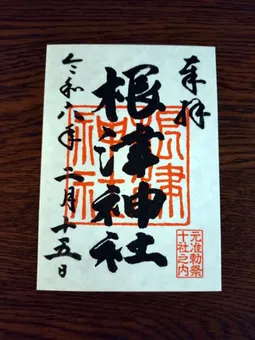 奉拝
根津神社
令和六年二月十五日
根津神社
元准勅祭
十社之内